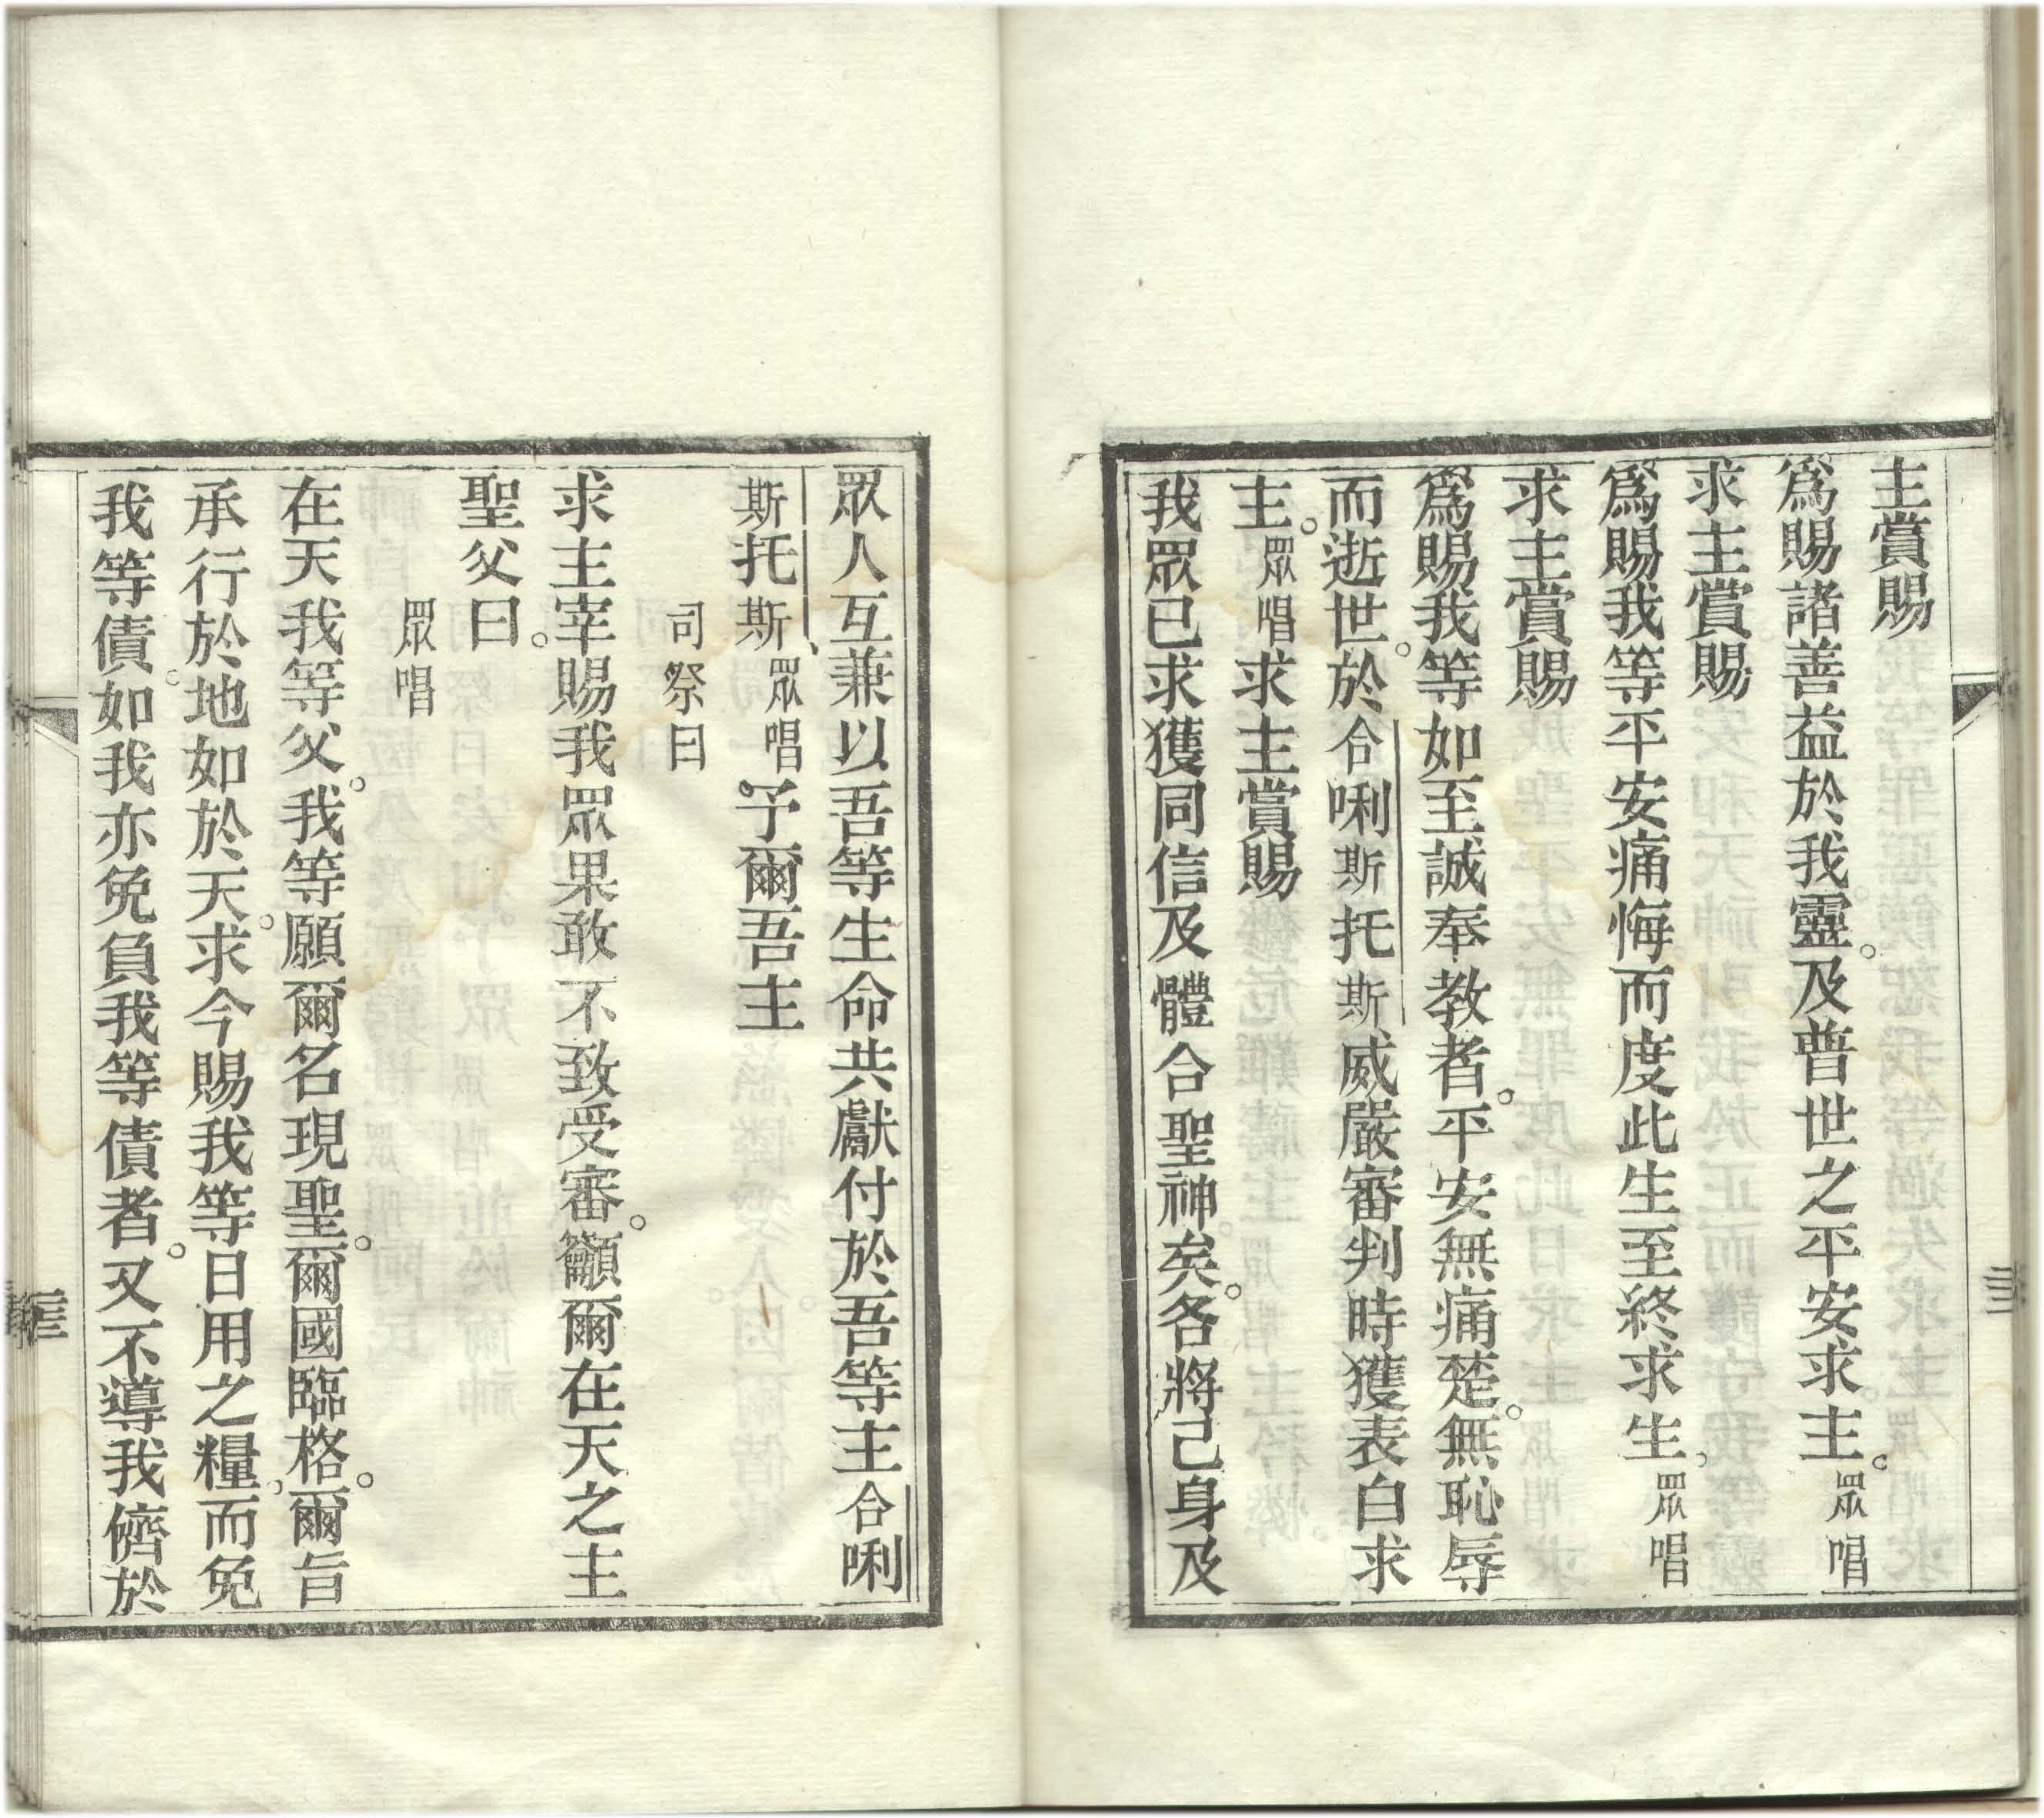 主賞賜
爲賜諸善益於我靈。及普世之平安求主。眾唱
求主賞賜
爲賜我等平安痛悔而度此生至終求生。眾唱
求主賞賜
爲賜我等如至誠奉教者。平安無痛楚。無恥辱
而逝世。於合唎斯托斯威嚴審判時獲表白求
主。眾唱求主賞賜
我眾已求獲同信及體合聖神矣。各將己身及
眾人互兼以吾等生命共獻付於吾等主合唎
斯托斯、眾唱予爾吾主
司祭曰
求主宰賜我眾果敢不致受審。籲爾在天之主
聖父曰。
眾唱
在天我等父。我等願爾名現聖。爾國臨格。爾旨
承行於地如於天。求今賜我等日用之糧。而免
我等債。如我亦免負我等債者。又不導我儕於